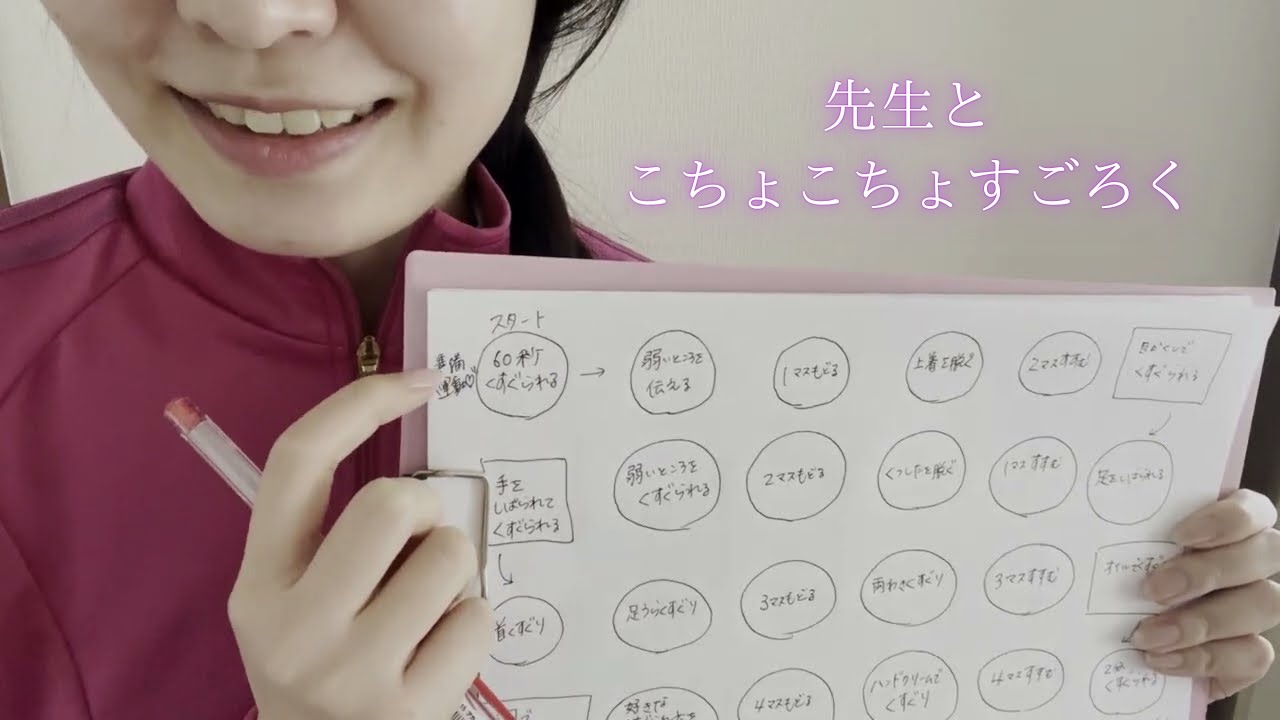 先生と
こちょこちょすごろく
スタート
準備
運動♡
60秒
くすぐられる
→
弱いところを
伝える
1マスもどる
上着を脱ぐ
2マスすすむ
目かくしで
くすぐられる
手を
しばられて
くすぐられる
弱いところを
くすぐられる
2マスもどる
くつしたを脱ぐ
1マスすすむ
足をしばられる
首くすぐり
足うらくすぐり
3マスもどる
両わきくすぐり
3マスすすむ
オイルでくすぐ
好きな
4マスもどる
ハンドクリームで
くすぐり
4マスすすむ
くすぐられる